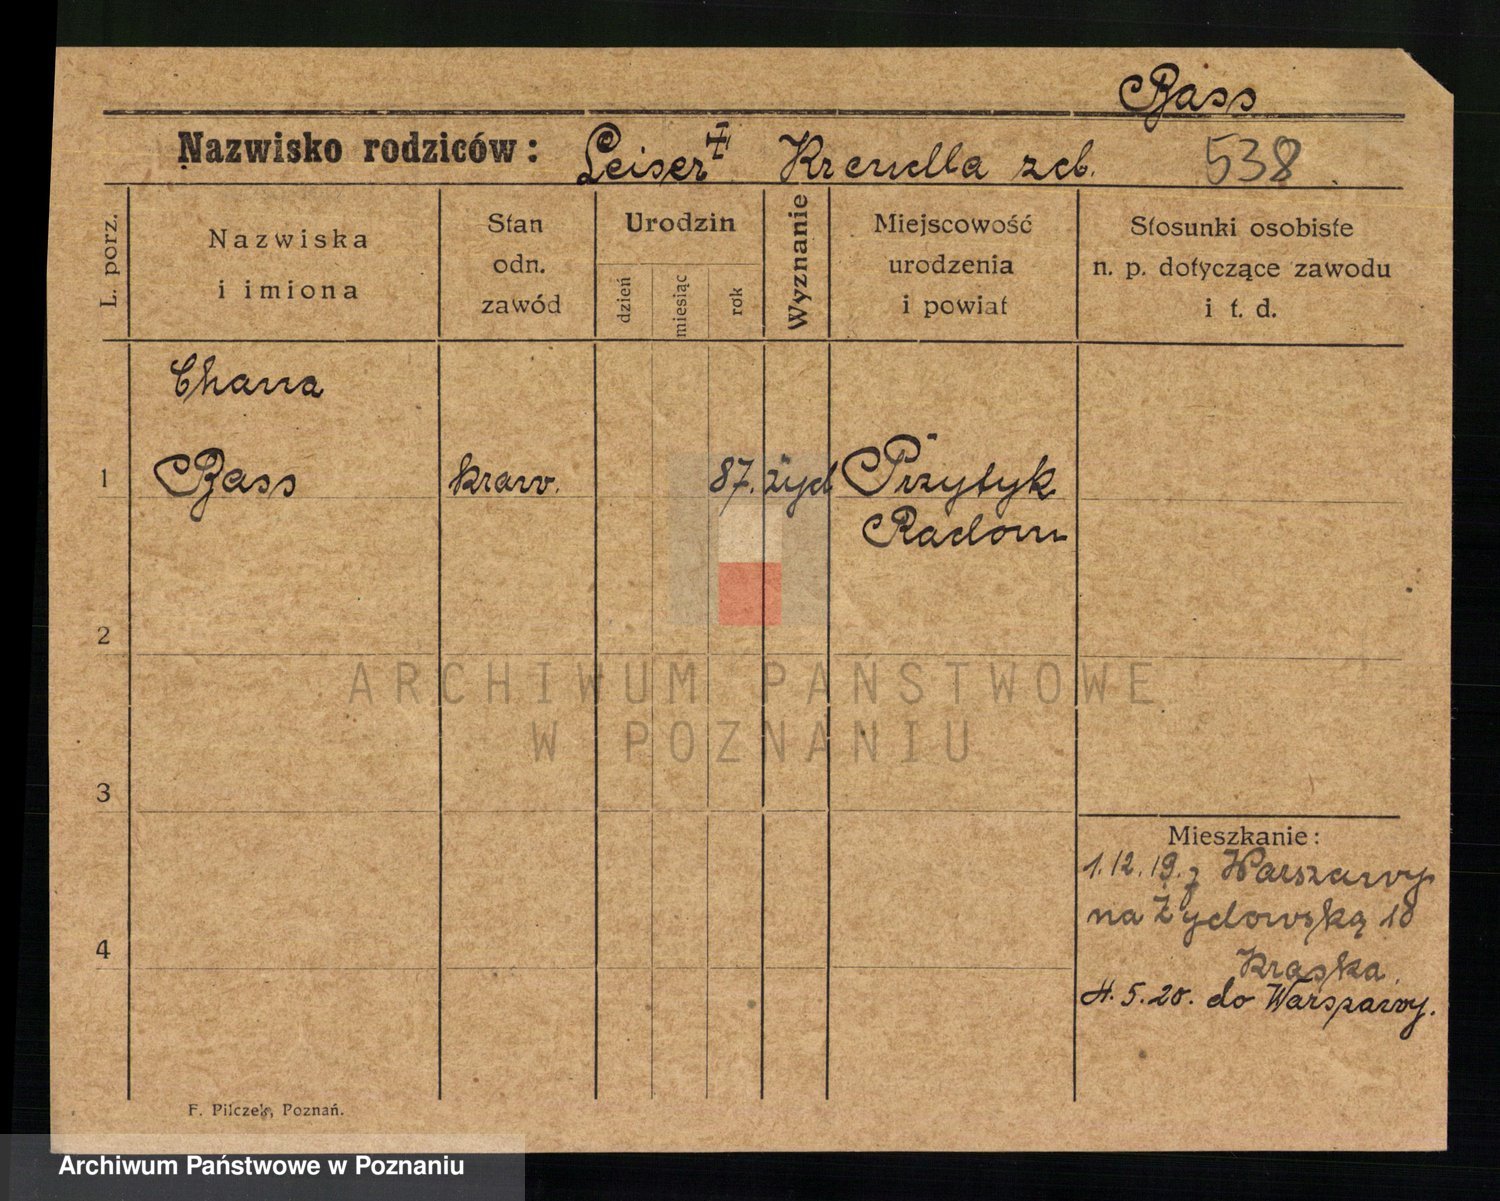 Bass
Nazwisko rodziców: Leiser Krendla zd. 538
L. porz.
Nazwiska
i imiona
Stan
odn.
zawód
Urodzin
dzień
miesiąc
rok
Wyznanie
Miejscowość
urodzenia
i powiat
Stosunki osobiste
n. p. dotyczące zawodu
i t. d.
Chana
1 Bass kraw. 87. żyd Przytyk
Radom
2
ARCHIWUM PAŃSTWOWE
W POZNANIU
3
Mieszkanie:
1.12.19. z Warszawy
na Żydowską 10
4
Kraska
4.5.20. do Warszawy.
F. Pilczek, Poznań.
Archiwum Państwowe w Poznaniu